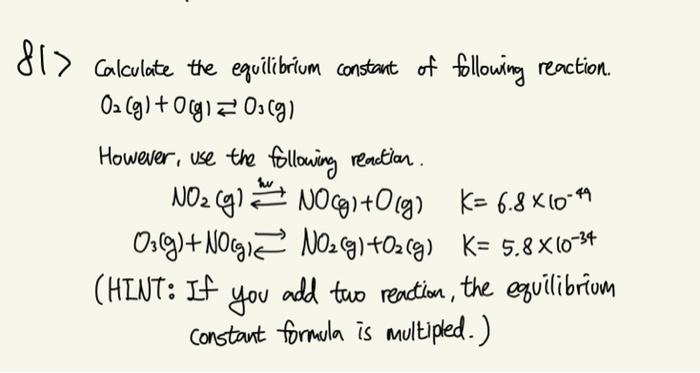 81> Calculate the equilibrium constant of following reaction.
O₂(g)+O(g)⇄O₃(g)
However, use the following reaction.
NO₂(g) ⇄ʰᵛ NO(g)+O(g) K= 6.8×10⁻⁴⁹
O₃(g)+NO(g)⇄ NO₂(g)+O₂(g) K= 5.8×10⁻³⁴
(HINT: If you add two reaction, the equilibrium
constant formula is multipled.)